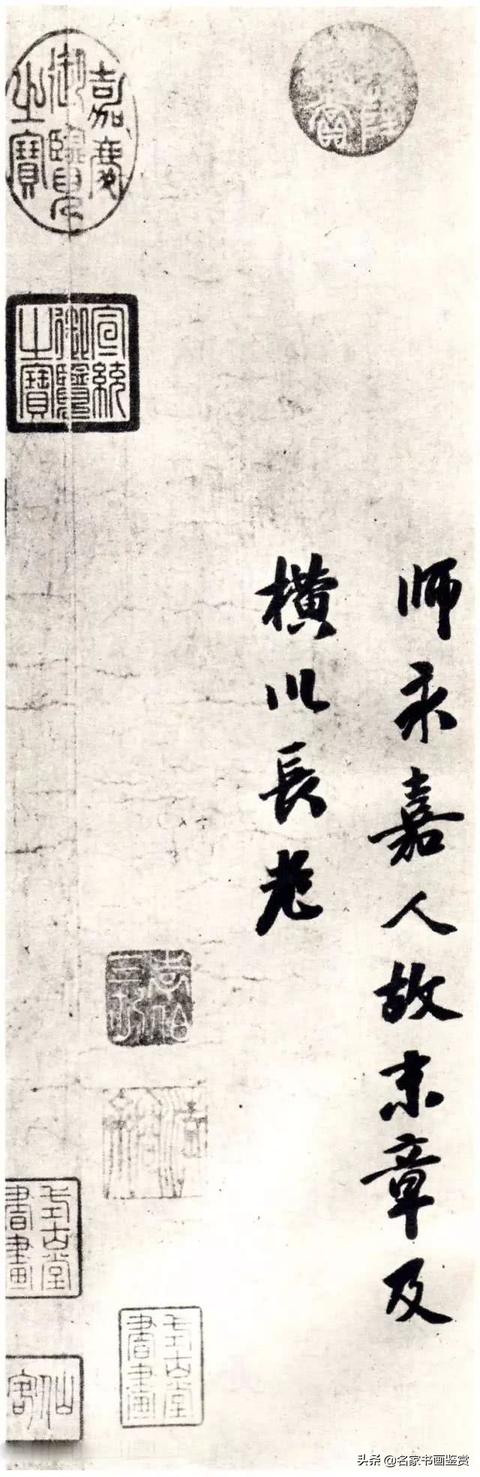 师永嘉人故末章及
横川長老
嘉慶御覽之寶
宣統御覽之寶
式古堂書畫
式古堂書畫
仙客
头条 @名家书画鉴赏